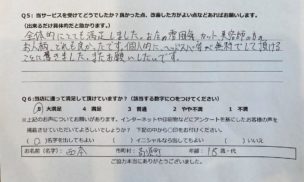 Q5：当サービスを受けてどうでしたか？良かった点、改善した方がよい点などあればお願いします。
（出来るだけ具体的だと助かります。）
全体的にとても満足しました。お店の雰囲気、カット、美容師の
お人柄、どれも良かったです。個人的に、ヘッドスパが無料でして頂ける
ことに驚きました。またお願いしたいです。
Q6：当店に通って満足して頂けていますか？（該当する数字に○をつけてください）
5 大満足 4 満足 3 普通 2 やや不満 1 不満
※上記のお声についてお願いがあります。インターネットや印刷物などにアンケートを基にしたお客様の声を
掲載させていただいてよろしいでしょうか？ 下記の中から○印をお付けください。
（ ）名字を出してもよい （ ）イニシャルなら出してもよい （ ）いいえ
お名前（名字） 市町村 年齢 18歳・代
ご協力本当にありがとうございました。